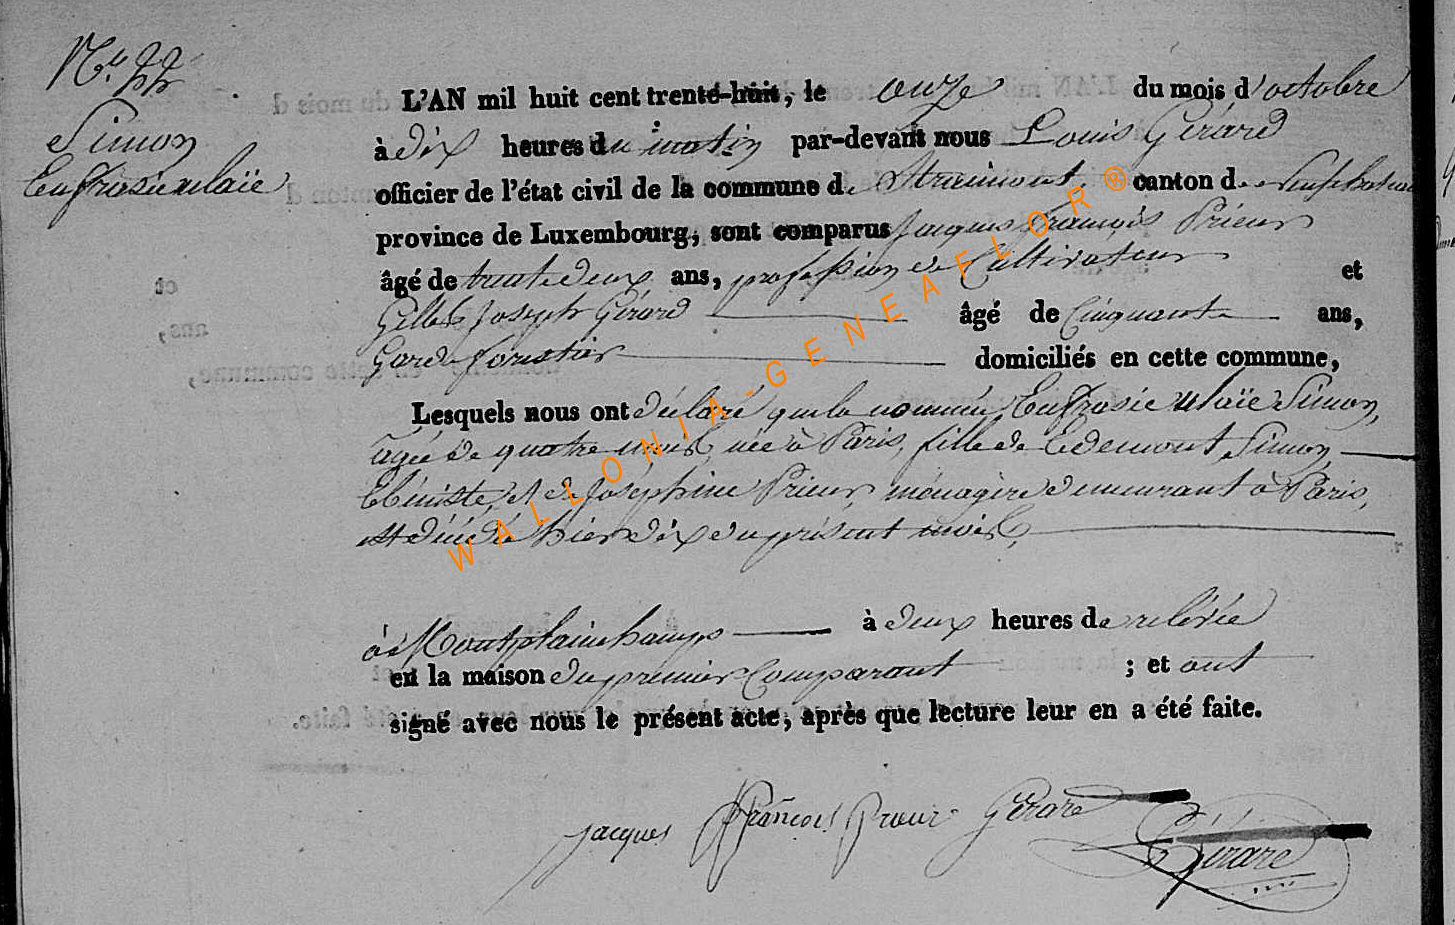 N° 22
Simon
Eufrosie ulaïe
L'AN mil huit cent trente-huit, le onze du mois d'octobre
à dix heures du matin par-devant nous Louis Gérard
officier de l'état civil de la commune de Straimont, canton de neufchateau
province de Luxembourg, sont comparus Jacques françois Prieur
âgé de trente deux ans, profession de Cultivateur et
Gilles Joseph Gérard âgé de Cinquante ans,
Garde forestier domiciliés en cette commune,
Lesquels nous ont déclaré que la nommée Eufrosie ulaïe Simon,
agée de quatre mois, née à Paris, fille de Edemont Simon
Ebéniste, et de Joséphine Prieur, ménagère demeurant à Paris,
est décédée hier dix du présent mois,
à Montplainchamps à deux heures de relevée
en la maison du premier Comparant ; et ont
signé avec nous le présent acte, après que lecture leur en a été faite.
jacques François Prieur Gérard
Gérard
WALLONIA-GENEAFLOR®